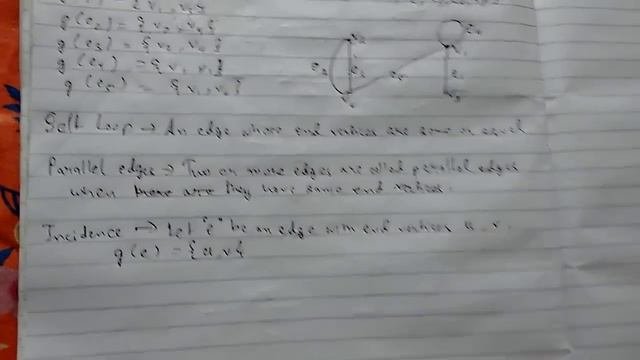 g(e₂) = {v₂, v₄}
g(e₃) = {v₂, v₄}
g(e₄) = {v₁, v₁}
g(e₅) = {v₁, v₄}
Self loop → An edge whose end vertices are same or equal
Parallel edges → Two or more edges are called parallel edges
when there are they have same end vertices.
Incidence → Let "e" be an edge with end vertices u, v.
g(e) = {u, v}